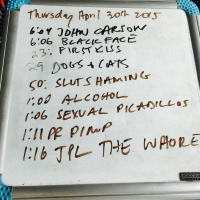 Thursday April 30th 2015
6:04 JOHN CARSON
6:06 BLACKFACE
23: FIRST KISS
29 DOGS & CATS
50: SLUTSHAMING
1:00 ALCOHOL
1:06 SEXUAL PICADILLOS
1:11 PR PIMP
1:16 JPL THE WHORE